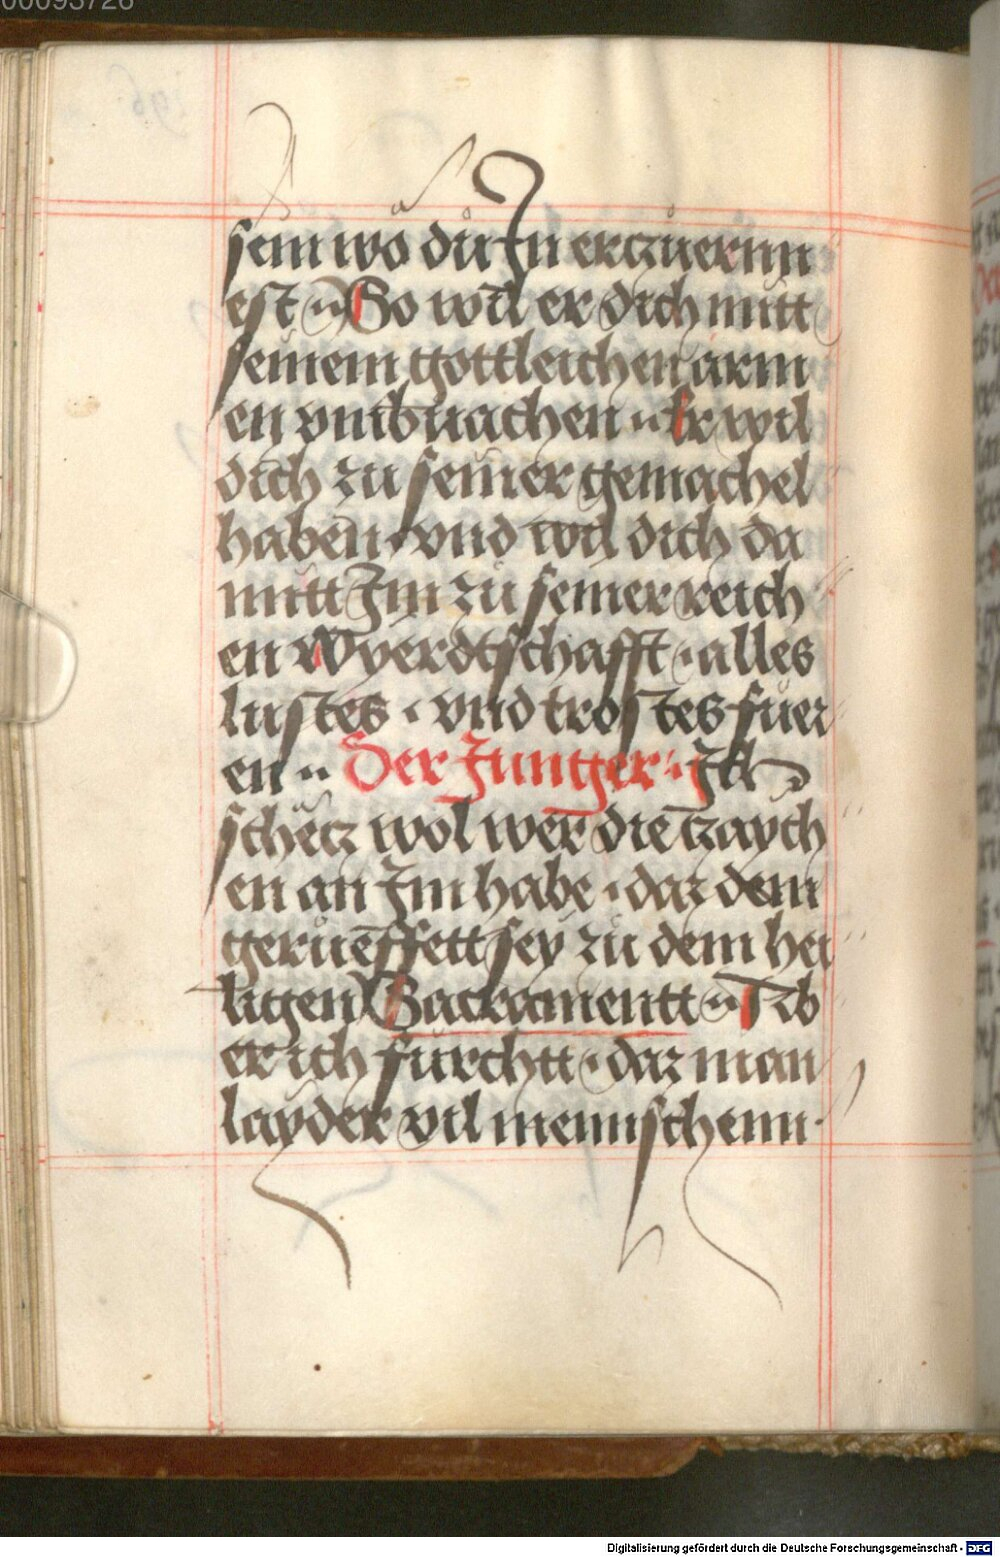 00093726
sein wo du In erczuernn
est So wil er dich mitt
seinem gottleichen arm
en vmbuachen Er wil
dich zu seiner gemachel
haben vnd wil dich da
mitt Im zu seiner reich
en Wyerdtschafft · alles
lustes · vnd trostes füer
en ·· Der Junger · Ich
schecz wol wer die czaych
en an Im habe · daz dem
gerueffett sey zu dem hei
ligen Sacramentt ·· Ab
er ich fürchtt · daz man
layder vil mennschenn ·
Digitalisierung gefördert durch die Deutsche Forschungsgemeinschaft - DFG